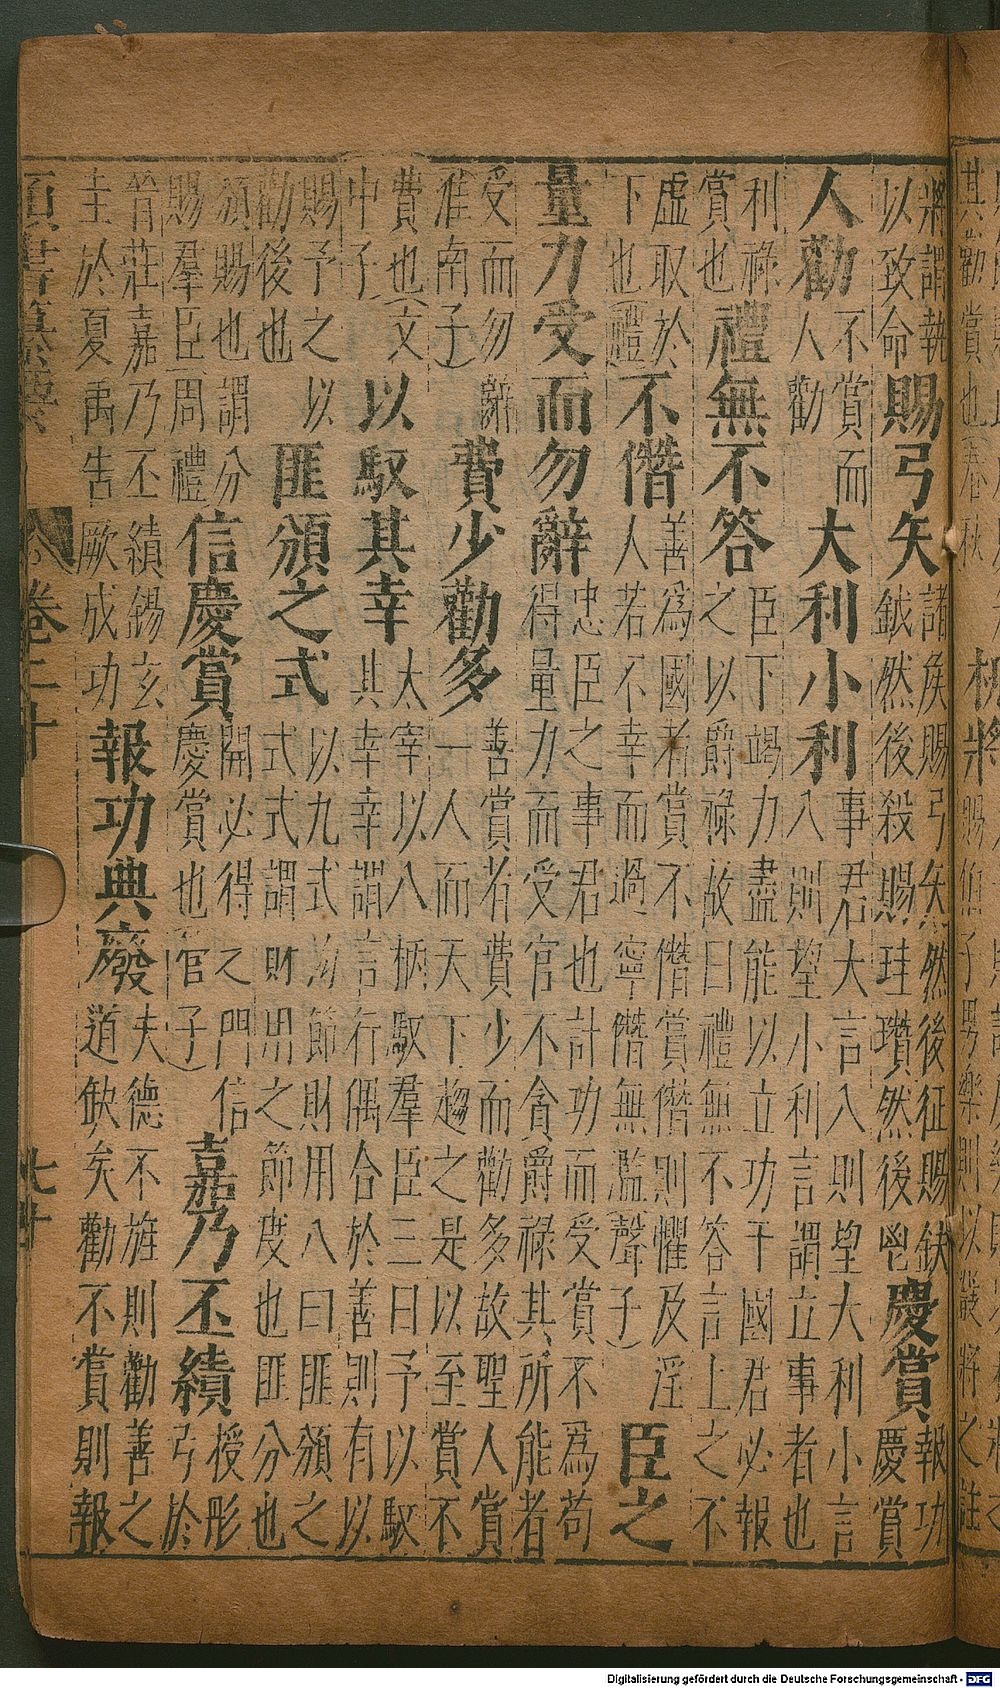 其勸賞也春秋
賜伯子男樂則以鼗將之註
將謂執
以致命
賜弓矢
諸侯賜弓矢然後征賜鈇
鉞然後殺賜珪瓚然後鬯
慶賞
報功
慶賞
人勸
不賞而
人勸
大利小利
事君大言入則望大利小言
入則望小利言謂立事者也
利祿
賞也
禮無不答
臣下竭力盡能以立功于國君必報
之以爵祿故曰禮無不答言上之不
虛取於
下也(禮)
不僭
善爲國者賞不僭賞僭則懼及淫
人若不幸而過寧僭無濫(聲子)
臣之
量力受而勿辭
忠臣之事君也計功而受賞不爲苟
得量力而受官不貪爵祿其所能者
受而勿辭
(淮南子)
費少勸多
善賞者費少而勸多故聖人賞
一人而天下趨之是以至賞不
費也(文
中子)
以馭其幸
太宰以八柄馭羣臣三曰予以馭
其幸幸謂言行偶合於善則有以
賜予之以
勸後也
匪頒之式
以九式均節財用八曰匪頒之
式式謂財用之節度也匪分也
頒賜也謂分
賜羣臣(周禮)
信慶賞
開必得之門信
慶賞也(管子)
嘉乃丕績
授彤
弓於
晉莊嘉乃丕績錫玄
圭於夏禹告厥成功
報功典廢
夫德不旌則勸善之
道缺矣勸不賞則報
卷二十
Digitalisierung gefördert durch die Deutsche Forschungsgemeinschaft - DFG